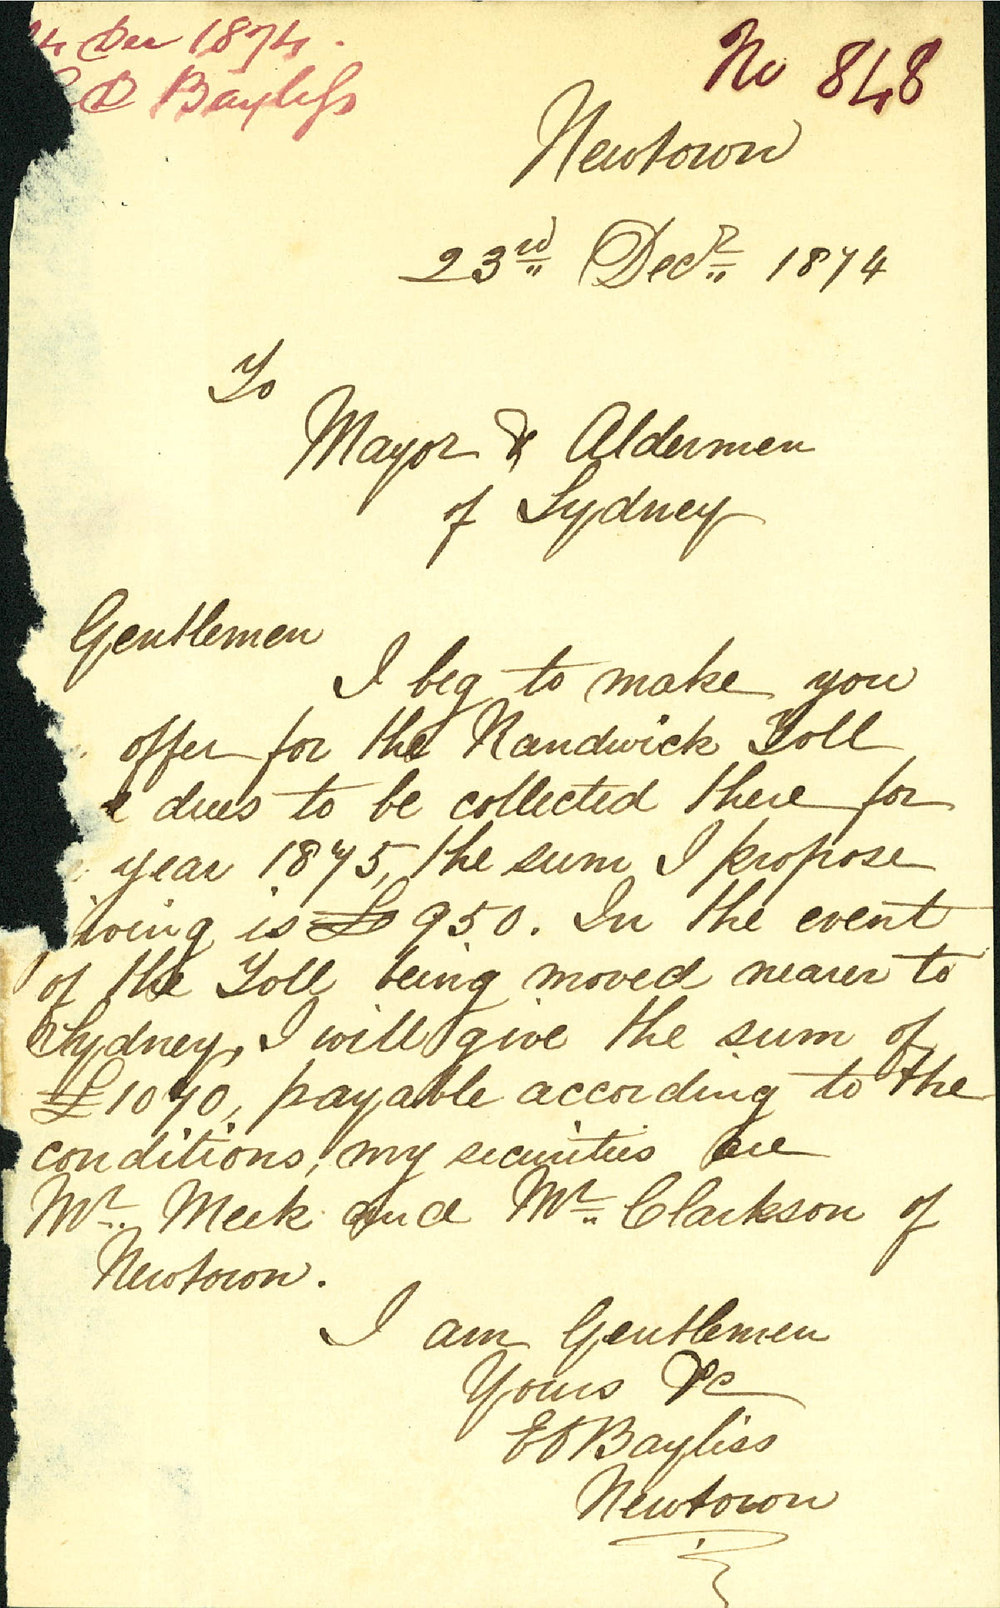 4 Dec 1874.
D Bayliss
No 848
Newtown
23rd Decr 1874
To
Mayor & Aldermen
of Sydney
Gentlemen
I beg to make you
offer for the Randwick Toll
e dues to be collected there for
year 1875, the sum I propose
iving is £950. In the event
of the Toll being moved nearer to
Sydney, I will give the sum of
£1070, payable according to the
conditions, my securities are
Mr. Meek and Mr. Clarkson of
Newtown.
I am Gentlemen
Yours &c
Bayliss
Newtown